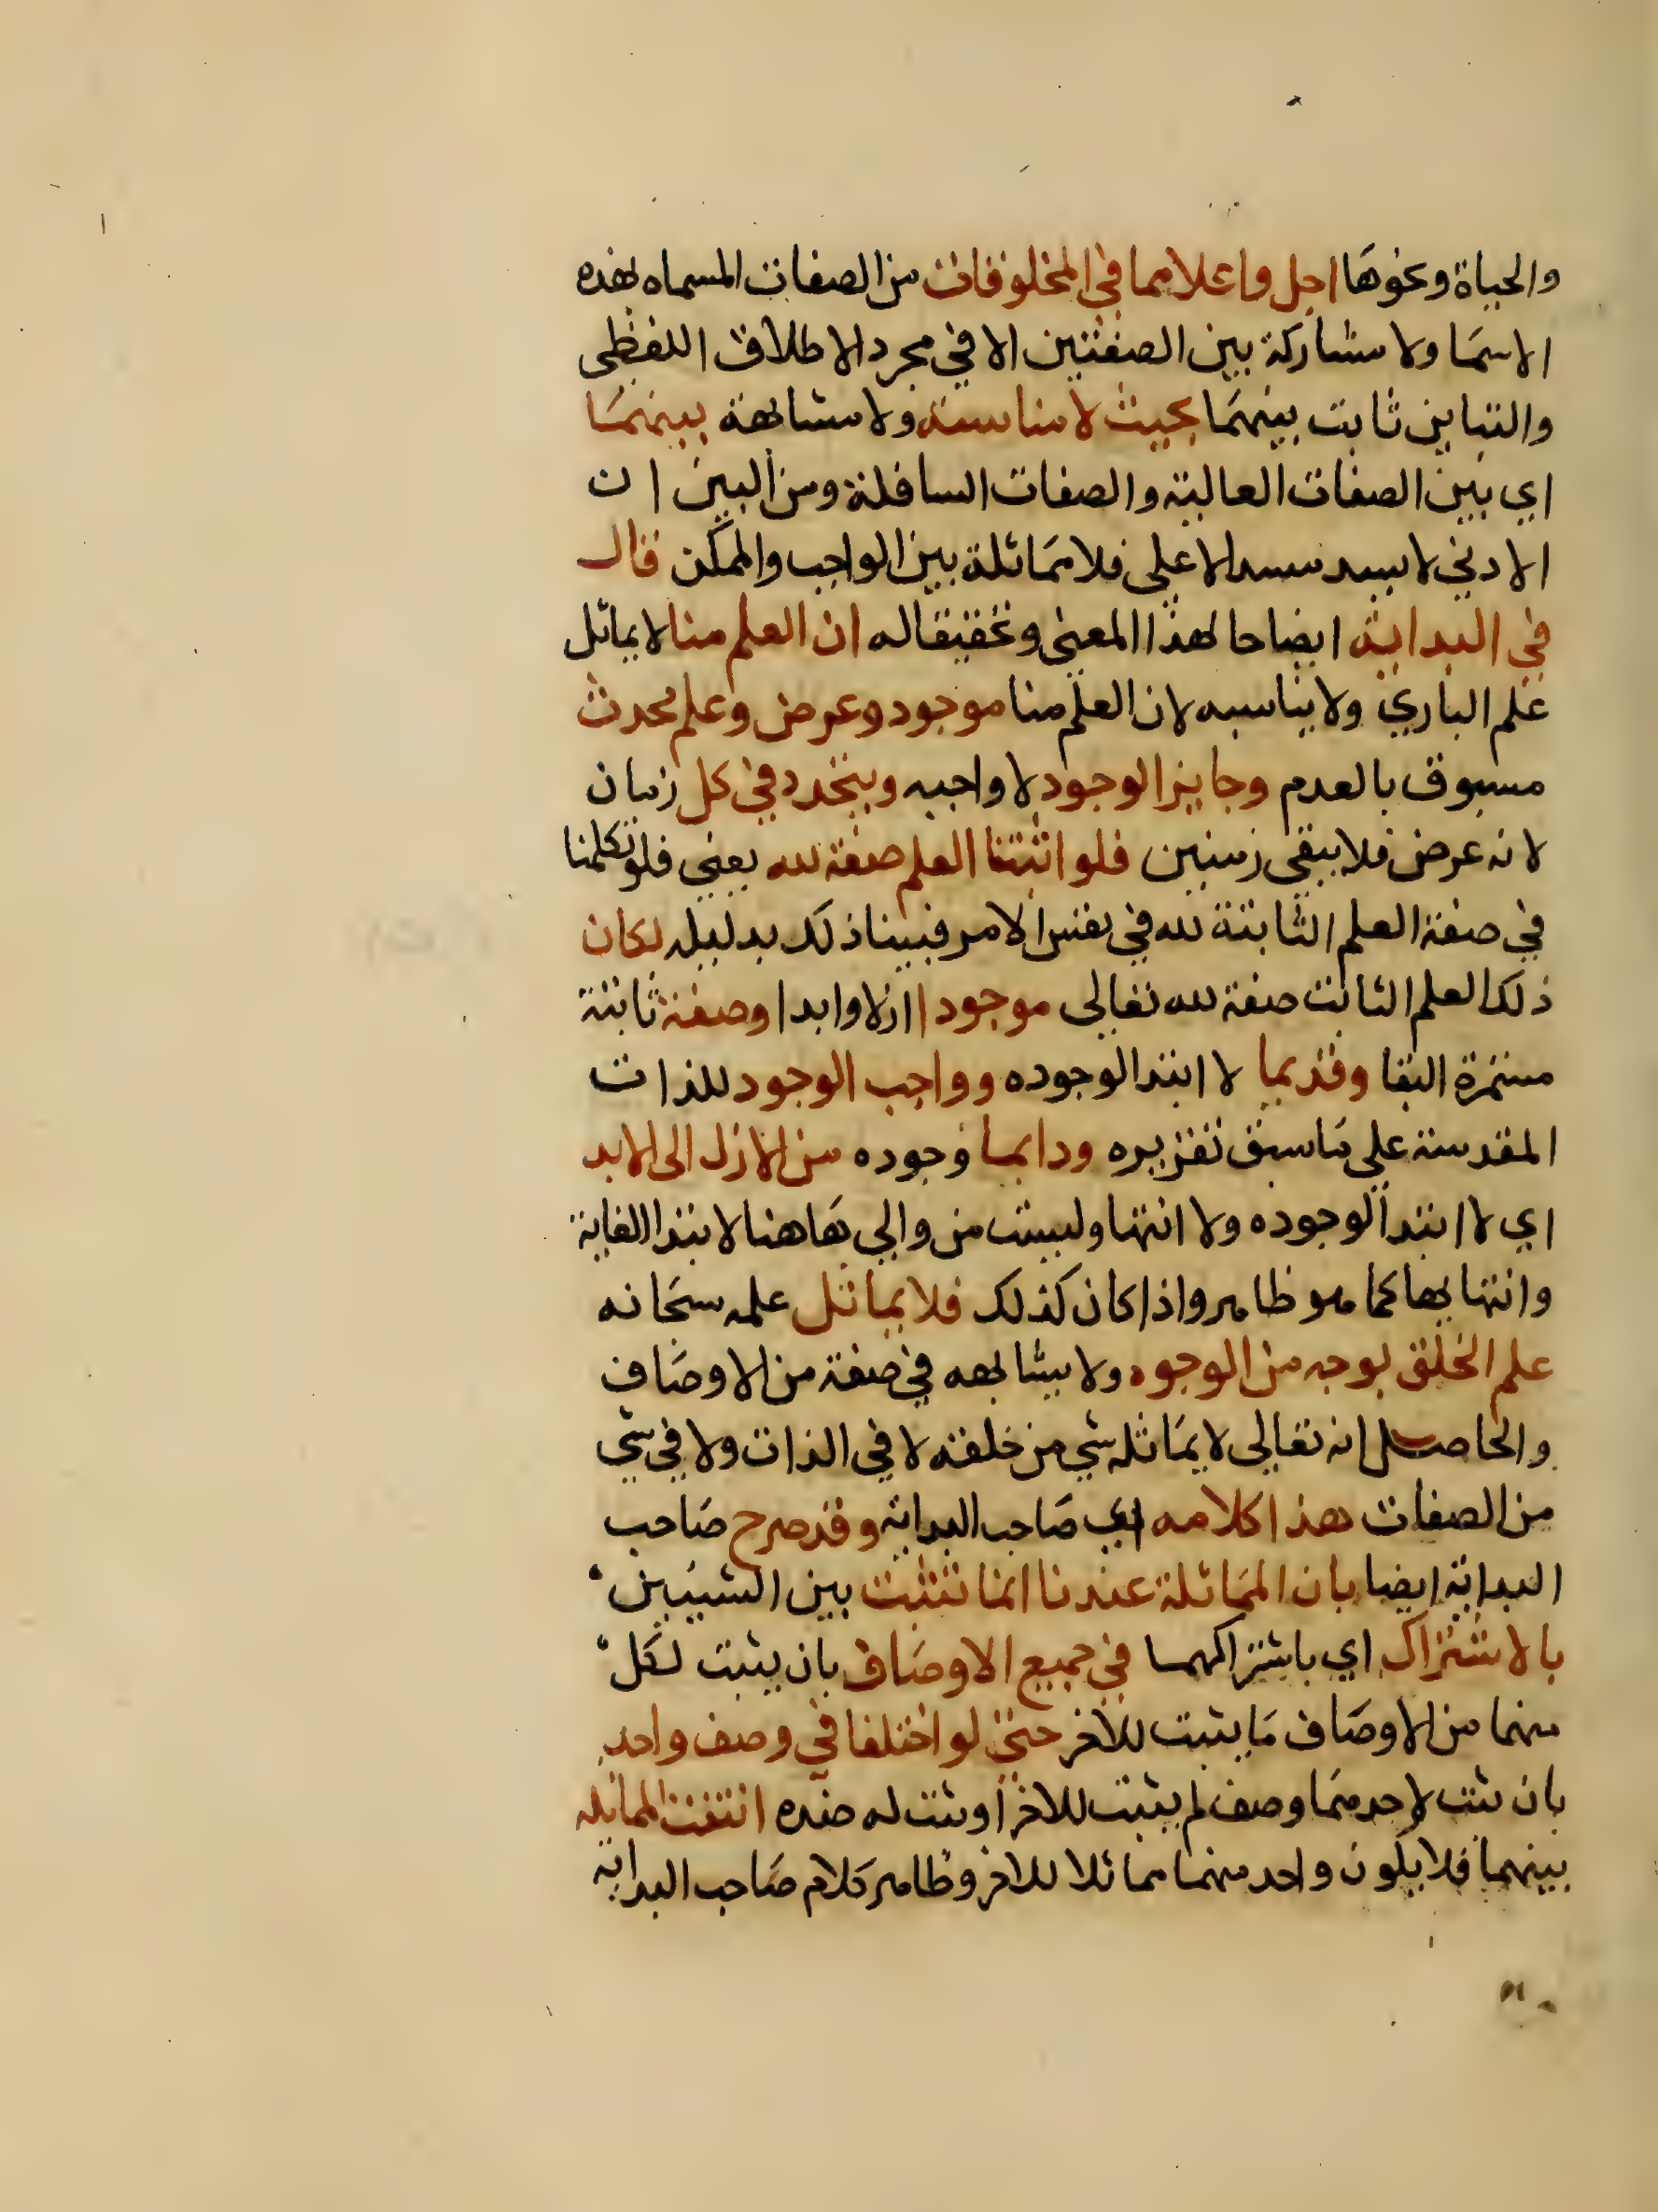 والحياة ونحوها اجل واعلا مما في المخلوقات من الصفات المسماه بهذه
الاسما ولا مشاركة بين الصفتين الا في مجرد الاطلاق اللفظي
والتباين ثابت بينهما بحيث لا مناسبة ولا مشابهة بينهما
اي بين الصفات العالية والصفات السافلة ومن البين ان
الادني لا يسد مسد الاعلي فلا مماثلة بين الواجب والممكن قال
في البداية ايضاحا لهذا المعني وتحقيقا له ان العلم منا لا يماثل
علم الباري ولا يناسبه لان العلم منا موجود وعرض وعلم محدث
مسبوق بالعدم وجايز الوجود لا واجبه ويتجدد في كل زمان
لانه عرض فلا يبقي زمنين فلو اثبتنا العلم صفة لله يعني فلو تكلمنا
في صفة العلم الثابتة لله في نفس الامر فبينا ذلك بدليله لكان
ذلك العلم الثابت صفة لله تعالي موجودا ازلا وابدا وصفة ثابتة
مستمرة البقا وقديما لا ابتدا لوجوده وواجب الوجود للذات
المقدسة علي ما سبق تقريره ودايما وجوده من الازل الي الابد
اي لا ابتدا لوجوده ولا انتها وليست من والي هاهنا لابتدا الغاية
وانتهايها كما هو ظاهر واذا كان كذلك فلا يماثل علمه سبحانه
علم الخلق بوجه من الوجوه ولا يشابهه في صفة من الاوصاف
والحاصل انه تعالي لا يماثله شي من خلقه لا في الذات ولا في شي
من الصفات هذا كلامه اي صاحب البداية وقد صرح صاحب
البداية ايضا بان المماثلة عندنا انما تثبت بين الشيين
بالاشتراك اي باشتراكهما في جميع الاوصاف بان يثبت لكل
منهما من الاوصاف ما يثبت للاخر حتي لو اختلفا في وصف واحد
بان ثبت لاحدهما وصف لم يثبت للاخر او ثبت له ضده انتفت المماثله
بينهما فلا يكون واحد منهما مماثلا للاخر وظاهر كلام صاحب البداية